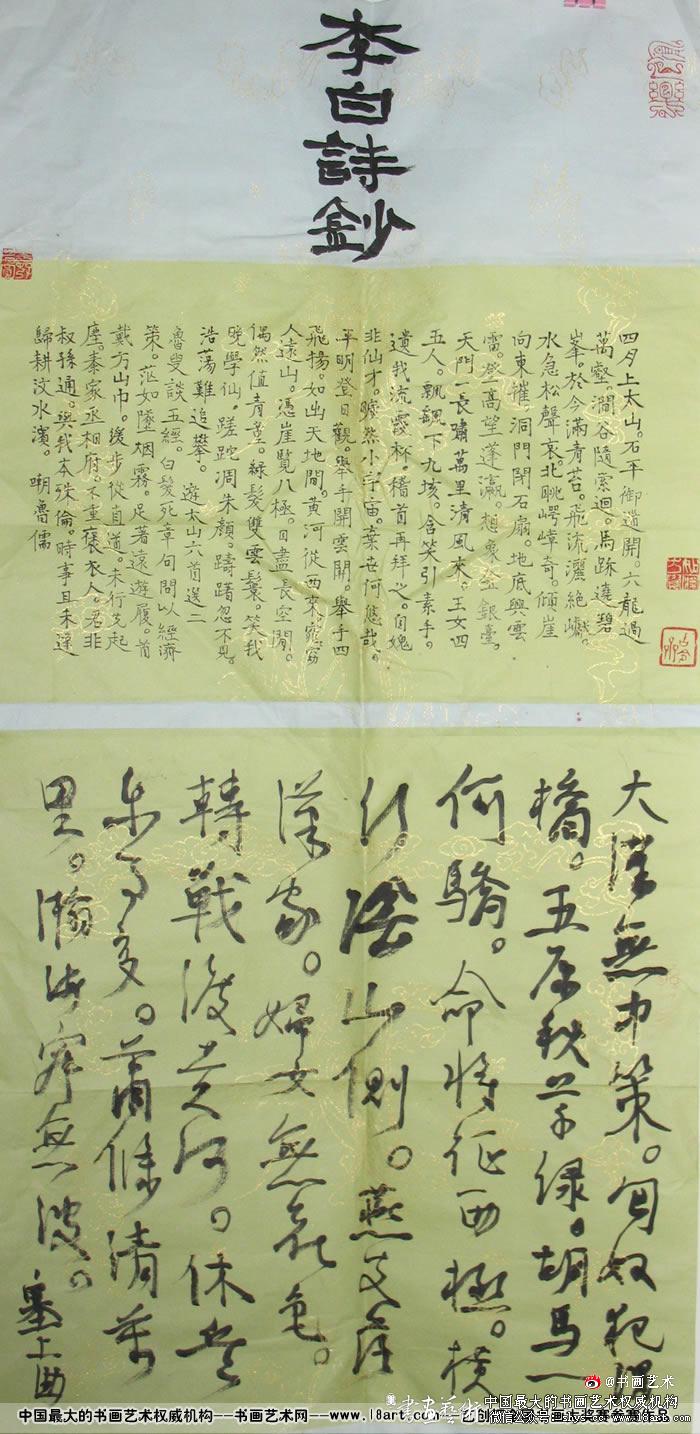 李白詩鈔
四月上太山。石平御道開。六龍過
萬壑。澗谷隨縈迴。馬跡遶碧
峯。於今滿青苔。飛流灑絕巘。
水急松聲哀。北眺崿嶂奇。傾崖
向東摧。洞門閉石扇。地底興雲
雷。登高望蓬瀛。想象金銀臺。
天門一長嘯萬里清風來。玉女四
五人。飄颻下九垓。含笑引素手。
遺我流霞杯。稽首再拜之。自媿
非仙才。曠然小宇宙。棄世何悠哉。
平明登日觀。舉手開雲開。舉手四
飛揚。如出天地間。黃河從西來。窈窕
人遠山。憑崖覽八極。目盡長空閒。
偶然值青童。綠髮雙雲鬟。笑我
晚學仙。蹉跎凋朱顏躊躇忽不見。
浩蕩難追攀。遊太山六首選二
魯叟談五經。白髮死章句問以經濟
策。茫如墜烟霧。足著遠遊履。首
戴方山巾。緩步從直道。未行先起
塵。秦家丞相府。不重褒衣人。君非
叔孫通。與我本殊倫。時事且未達
歸耕汶水濱。嘲魯儒
大漢無中策。匈奴犯渭
橋。五原秋草綠。胡馬一
何驕。命將征西極。橫
行陰山側。燕支落
漢家。婦女無花色。
轉戰渡黃河。休兵
樂事多。蕭條清萬
里。瀚海寂無波。塞上曲
@书画艺术
中国最大的书画艺术权威机构---书画艺术网---www.18art.com